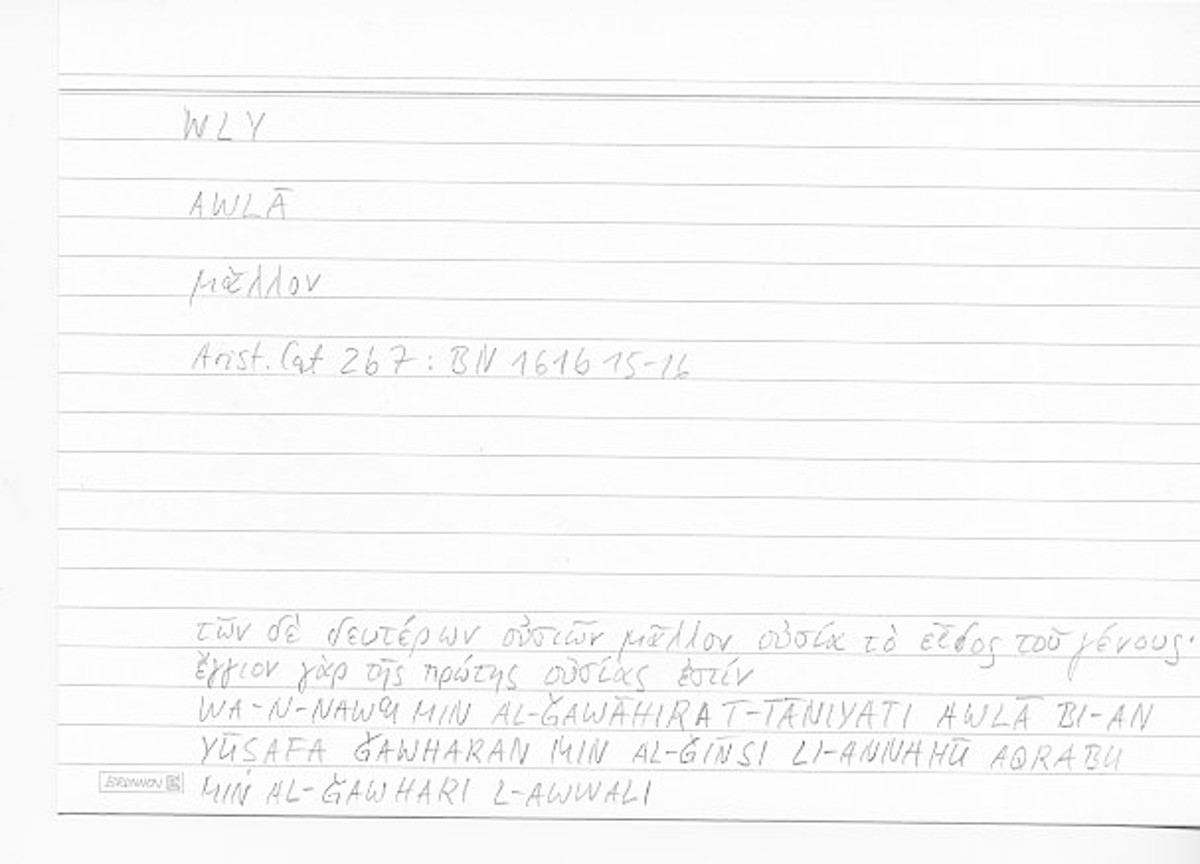 WLY
AWLĀ
μᾶλλον
Arist. Cat 2b7 : BN 161b 15-16
τῶν δὲ δευτέρων οὐσιῶν μᾶλλον οὐσία τὸ εἶδος τοῦ γένους·
ἔγγιον γὰρ τῆς πρώτης οὐσίας ἐστίν
WA-N-NAWʿU MIN AL-ǦAWĀHIRA T-TĀNIYATI AWLĀ BI-AN
YŪSAFA ǦAWHARAN MIN AL-ǦINSI LI-ANNAHŪ AQRABU
BRUNNEN MIN AL-ǦAWHARI L-AWWALI